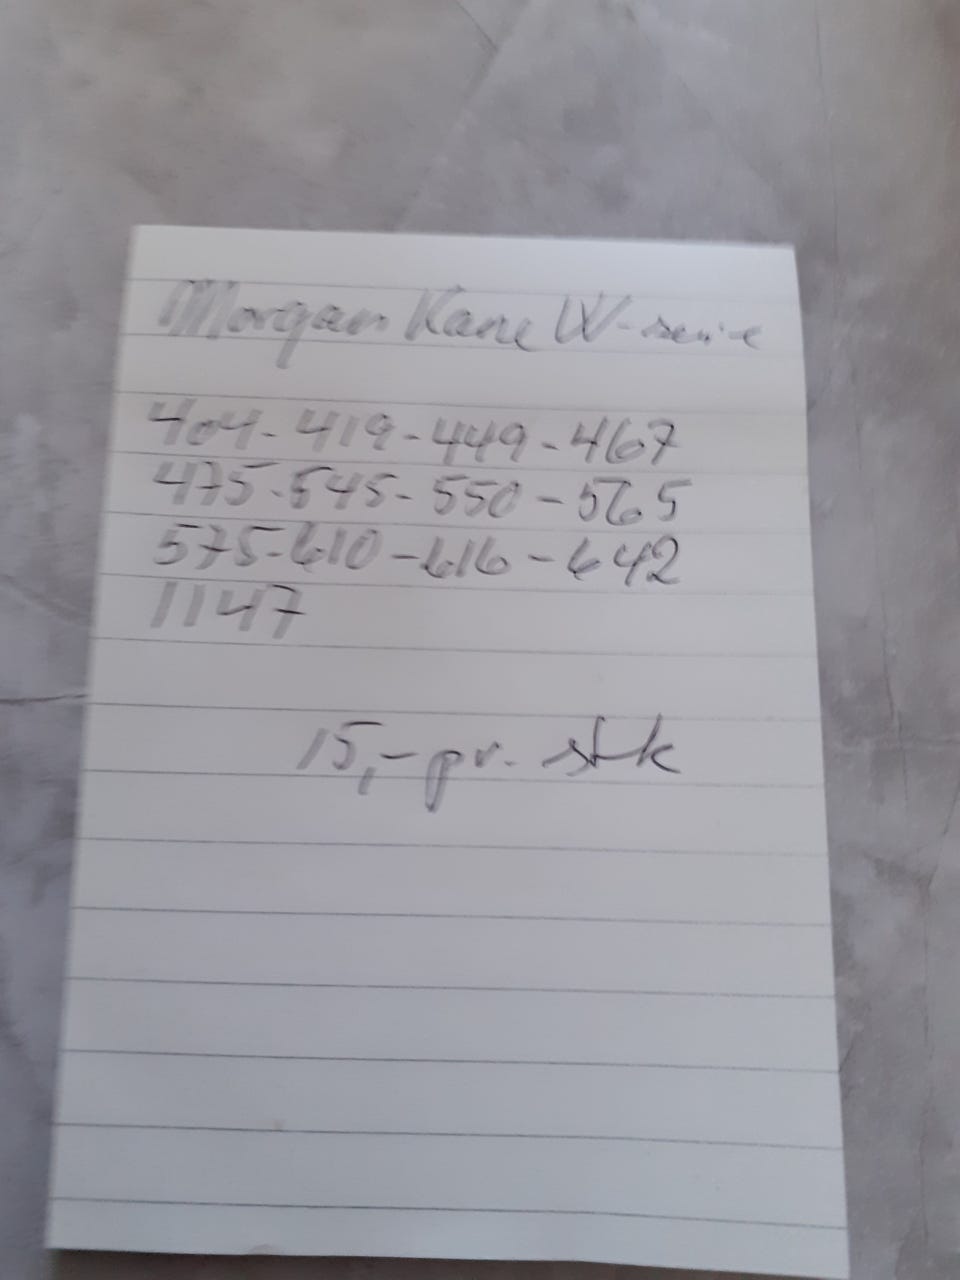 Morgan Kane W-serie
404-419-449-467
475-545-550-565
575-610-616-642
1147
15,- pr. stk